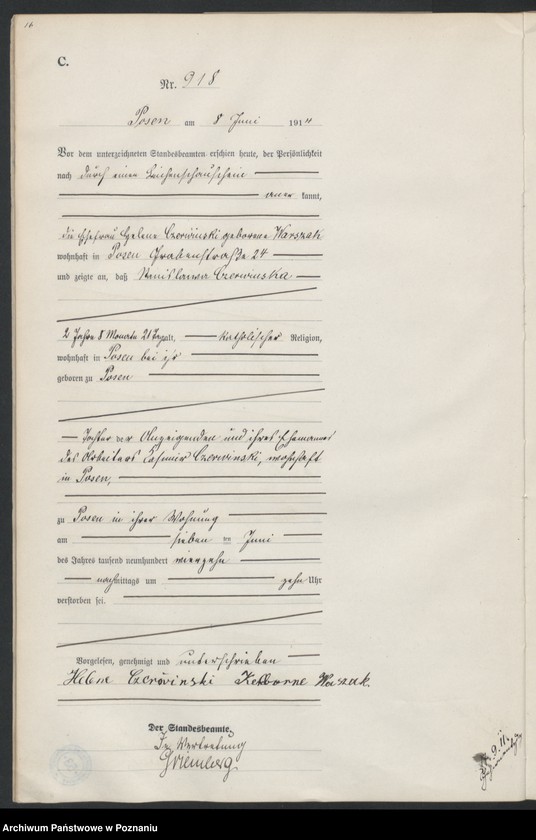 16
C.
Nr. 918
Posen am 8 Juni 1914
Vor dem unterzeichneten Standesbeamten erschien heute, der Persönlichkeit
nach durch einen Leichenschauschein
aner kannt,
die Ehefrau Helene Czerwinski geborene Warszak
wohnhaft in Posen Grabenstraße 24
und zeigte an, daß Stanislawa Czerwinska
2 Jahre 8 Monate 21 Tage alt, katholischer Religion,
wohnhaft in Posen bei ihr
geboren zu Posen
Tochter der Anzeigenden und ihres Ehemannes
des Arbeiters Kasimir Czerwinski, wohnhaft
in Posen,
zu Posen in ihrer Wohnung
am sieben ten Juni
des Jahres tausend neunhundert vierzehn
nachmittags um zehn Uhr
verstorben sei.
Vorgelesen, genehmigt und unterschrieben
Helene Czerwinski Geborne
Der Standesbeamte.
In Vertretung
Archiwum Państwowe w Poznaniu